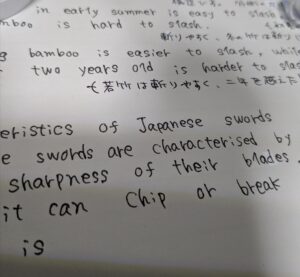 in early summer is easy to slash
mboo is hard to slash.
斬りやすく、
bamboo is easier to slash, whil
two years old is harder to slas
若竹は斬りやすく、二年を超えた
eristics of Japanese swords
e swords are characterised by
sharpness of their blades.
it can chip or break
is